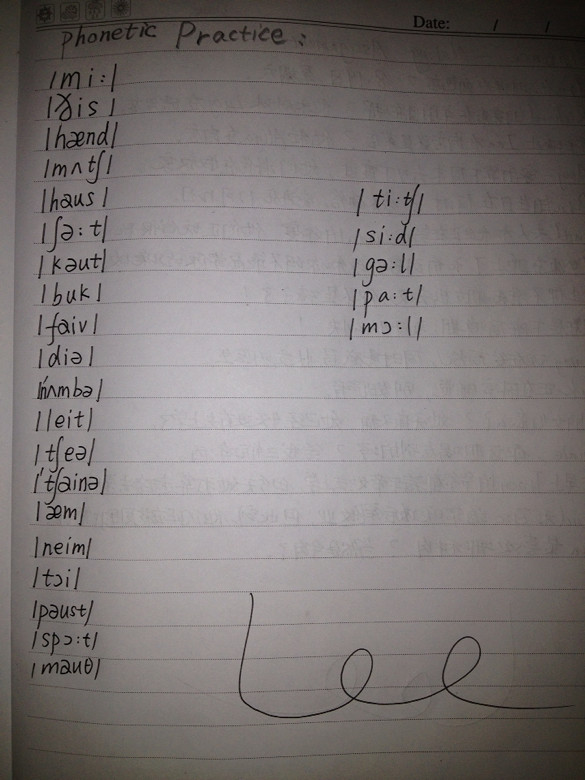 Date: / /
Phonetic Practice:
/mi:/
/ðis/
/hænd/
/mʌtʃ/
/haus/
/ʃə:t/
/kəut/
/buk/
/faiv/
/diə/
/'nʌmbə/
/leit/
/tʃeə/
/'tʃainə/
/æm/
/neim/
/tɔi/
/pəust/
/spɔ:t/
/mauθ/
/ti:tʃ/
/si:d/
/gə:l/
/pa:t/
/mɔ:l/
Lee